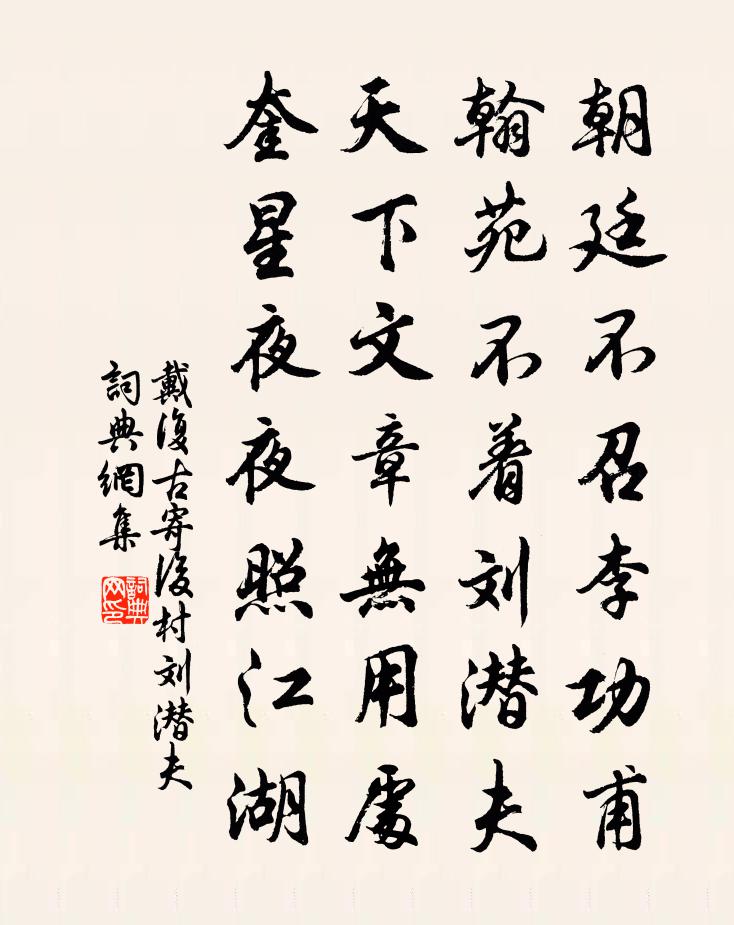 朝廷不召李功甫
翰苑不着刘潜夫
天下文章無用處
奎星夜夜照江湖
戴復古寄後村刘潜夫
詞典網集
詞典
网印